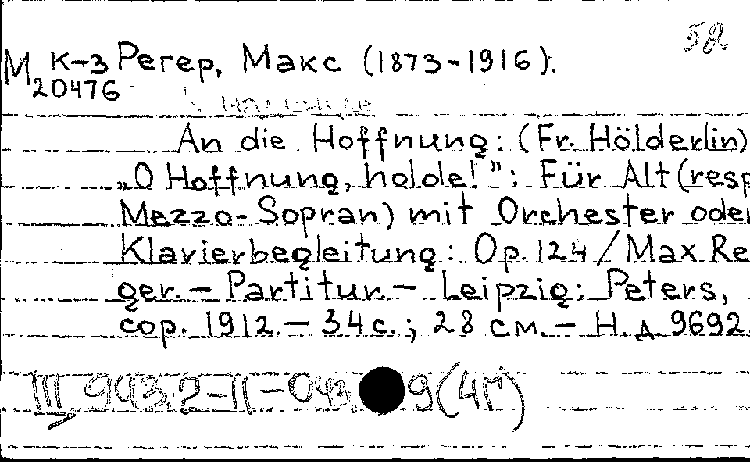 58
М К-3 Регер, Макс (1873-1916).
20476
An die Hoffnung: (Fr. Hölderlin)
„O Hoffnung, holde!": Für Alt (resp
Mezzo-Sopran) mit Orchester oder
Klavierbegleitung: Op. 124 / Max Re
ger. – Partitur. – Leipzig: Peters,
cop. 1912. – 34 с.; 28 см. – Н. д. 9692.
III